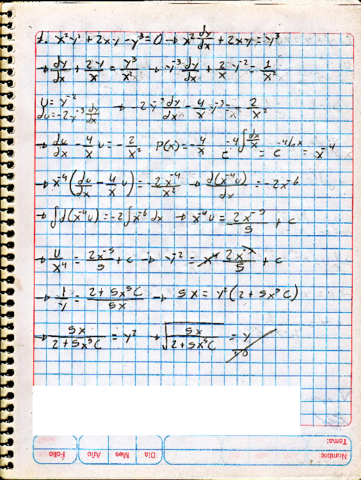 1. x²y' + 2xy - y³ = 0 → x² dy/dx + 2xy = y³
→ dy/dx + 2y/x = y³/x² → y⁻³ dy/dx + 2/x y⁻² = 1/x²
u = y⁻² → -2y⁻³ dy/dx - 4/x y⁻² = -2/x²
du = -2y⁻³ dy/dx
→ du/dx - 4/x u = -2/x² P(x) = -4/x e^(-4∫dx/x) = e^(-4Lnx) = x⁻⁴
→ x⁻⁴(du/dx - 4/x u) = -2x⁻⁴/x² → d(x⁻⁴u)/dx = -2x⁻⁶
→ ∫d(x⁻⁴u) = -2∫x⁻⁶dx → x⁻⁴u = 2x⁻⁵/5 + c
→ u/x⁴ = 2x⁻⁵/5 + c → y⁻² = x⁴ 2x⁻⁵/5 + c
→ 1/y = 2 + 5x⁵C/5x → 5x = y²(2 + 5x⁵C)
→ 5x/(2 + 5x⁵C) = y² → √(5x/(2 + 5x⁵C)) = y
Folio
Año
Mes
Día
Tema:
Nombre